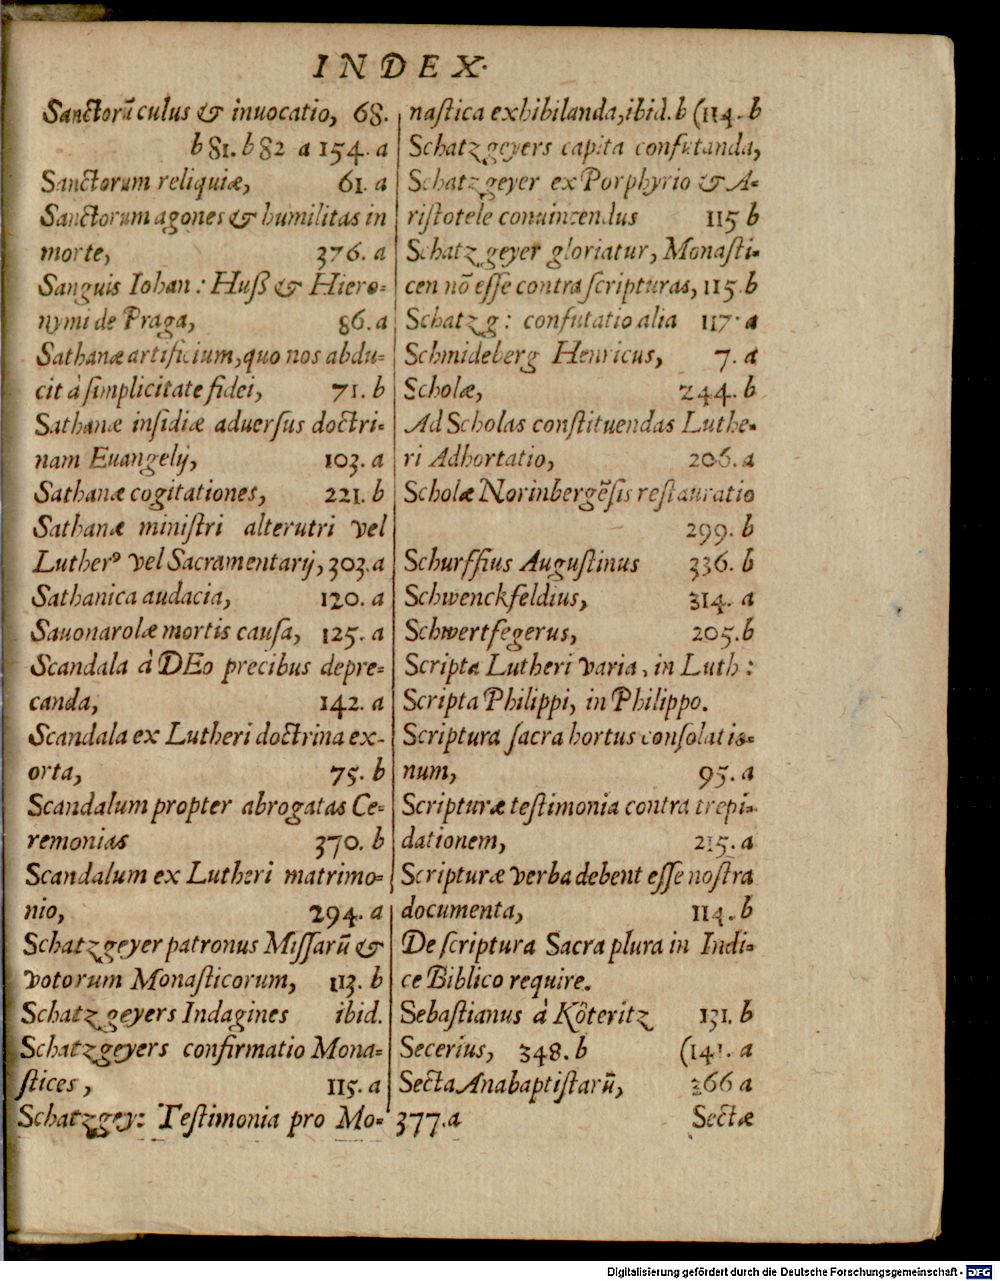 INDEX.
Sanctorũ culus & inuocatio, 68.
b 81. b 82 a 154. a
Sanctorum reliquiæ, 61. a
Sanctorum agones & humilitas in
morte, 376. a
Sanguis Iohan: Huß & Hiero-
nymi de Praga, 86. a
Sathanæ artificium, quo nos abdu-
cit à ſimplicitate fidei, 71. b
Sathanæ inſidiæ aduerſus doctri-
nam Euangelij, 103. a
Sathanæ cogitationes, 221. b
Sathanæ miniſtri alterutri vel
Lutherꝰ vel Sacramentarij, 303. a
Sathanica audacia, 120. a
Sauonarolæ mortis cauſa, 125. a
Scandala à DEo precibus depre-
canda, 142. a
Scandala ex Lutheri doctrina ex-
orta, 75. b
Scandalum propter abrogatas Ce-
remonias 370. b
Scandalum ex Lutheri matrimo-
nio, 294. a
Schatzgeyer patronus Miſſarũ &
votorum Monaſticorum, 113. b
Schatzgeyers Indagines ibid.
Schatzgeyers confirmatio Mona-
ſtices, 115. a
Schatzgey: Teſtimonia pro Mo-
naſtica exhibilanda, ibid. b (114. b
Schatzgeyers capita confutanda,
Schatzgeyer ex Porphyrio & A-
riſtotele conuincendus 115 b
Schatzgeyer gloriatur, Monaſti-
cen nõ eſſe contra ſcripturas, 115. b
Schatzg: confutatio alia 117. a
Schmideberg Henricus, 7. a
Scholæ, 244. b
Ad Scholas conſtituendas Luthe-
ri Adhortatio, 206. a
Scholæ Norinbergẽſis reſtauratio
299. b
Schurffius Auguſtinus 336. b
Schwenckfeldius, 314. a
Schwertfegerus, 205. b
Scripta Lutheri varia, in Luth:
Scripta Philippi, in Philippo.
Scriptura ſacra hortus conſolatio-
num, 95. a
Scripturæ teſtimonia contra trepi-
dationem, 215. a
Scripturæ verba debent eſſe noſtra
documenta, 114. b
De ſcriptura Sacra plura in Indi-
ce Biblico require.
Sebaſtianus à Kôteritz 131. b
Secerius, 348. b (141. a
Secta Anabaptiſtarũ, 366 a
377. a Sectæ
Digitalisierung gefördert durch die Deutsche Forschungsgemeinschaft - DFG